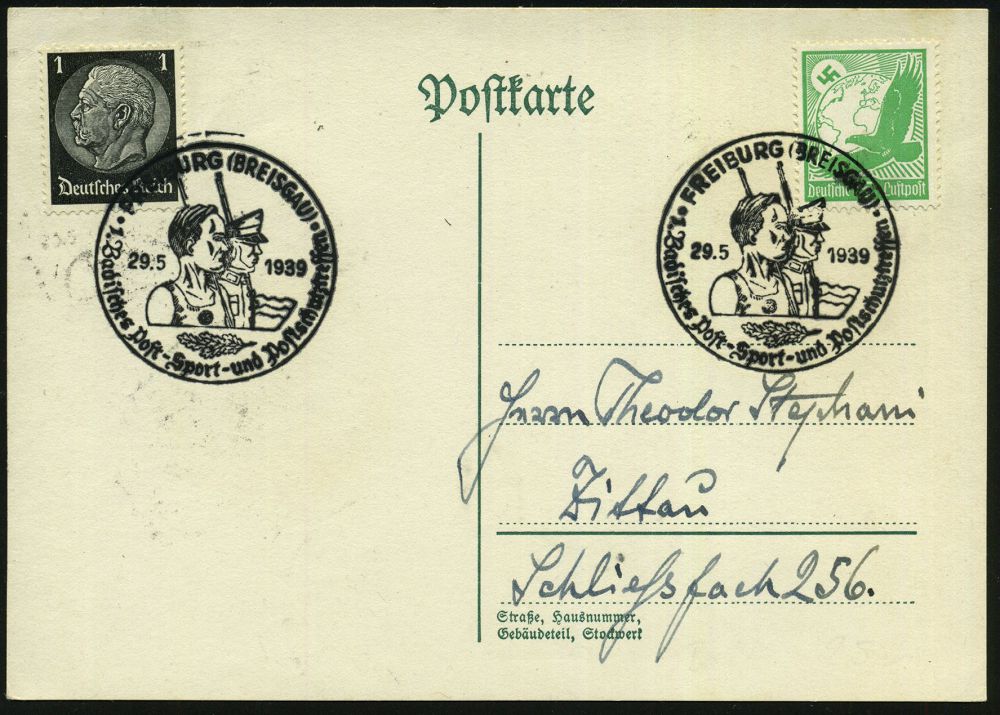 1 1
Deutsches Reich
Postkarte
Deutsches Luftpost
FREIBURG (BREISGAU)
29.5 1939
1. Badisches Post-Sport-und Postschutztreffen
FREIBURG (BREISGAU)
29.5 1939
1. Badisches Post-Sport-und Postschutztreffen
Herrn Theodor Stephani
Zittau
Schließfach 256.
Straße, Hausnummer,
Gebäudeteil, Stockwerk